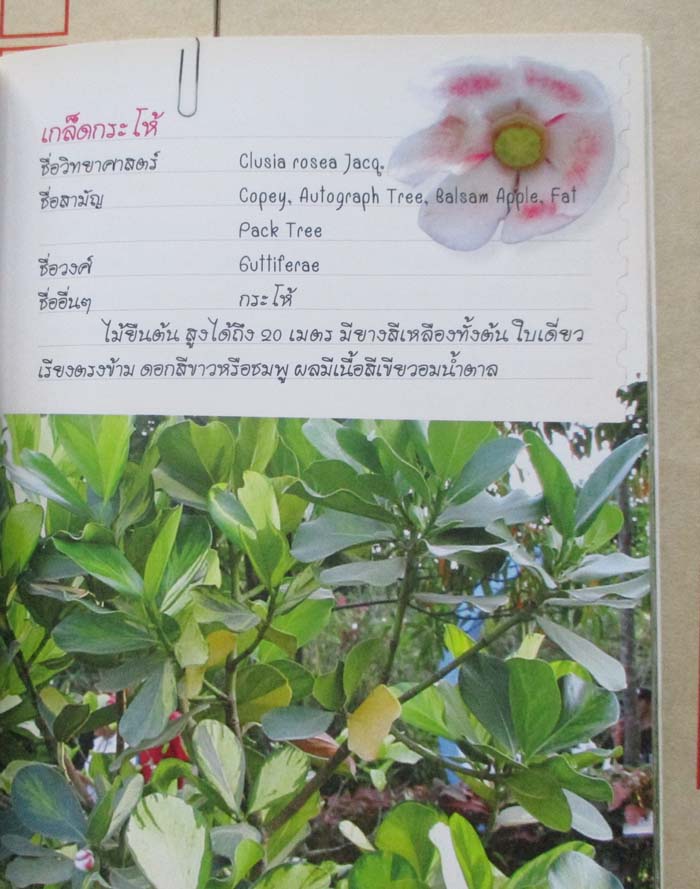 เกล็ดกระโห้
ชื่อวิทยาศาสตร์ Clusia rosea Jacq.
ชื่อสามัญ Copey, Autograph Tree, Balsam Apple, Fat
Pack Tree
ชื่อวงศ์ Guttiferae
ชื่ออื่นๆ กระโห้
ไม้ยืนต้น สูงได้ถึง 20 เมตร มียางสีเหลืองทั้งต้น ใบเดี่ยว
เรียงตรงข้าม ดอกสีขาวหรือชมพู ผลมีเนื้อสีเขียวอมน้ำตาล